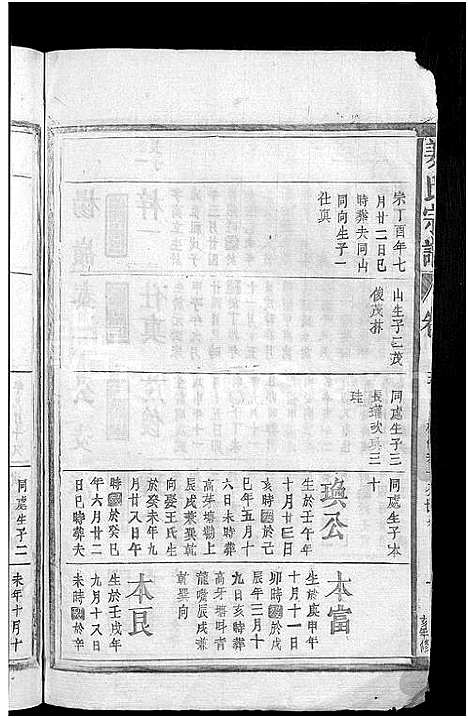 姜氏宗譜
宗丁酉年七
月廿二日巳
時葬夫同山
同向生子一
社真
山生子二茂
俊茂林
同處生子三
長璜次瑛三
珪
十
同處生子本
瑛公
生於壬午年
十月廿三日
亥時於己
巳年五月十
六日未時葬
高芽墻𡋯上
辰戌兼巽乾
向娶王氏生
於癸未年九
月廿又日午
時於癸巳
年六月廿二
日巳時葬夫
同處生子二
本富
生於庚申年
十月十一日
卯時於戊
辰年三月十
九日亥時葬
高牙墻背
龍嘴辰戌兼
乾巽向
本良
生於壬戌年
九月十又日
未時於辛
未年十月十